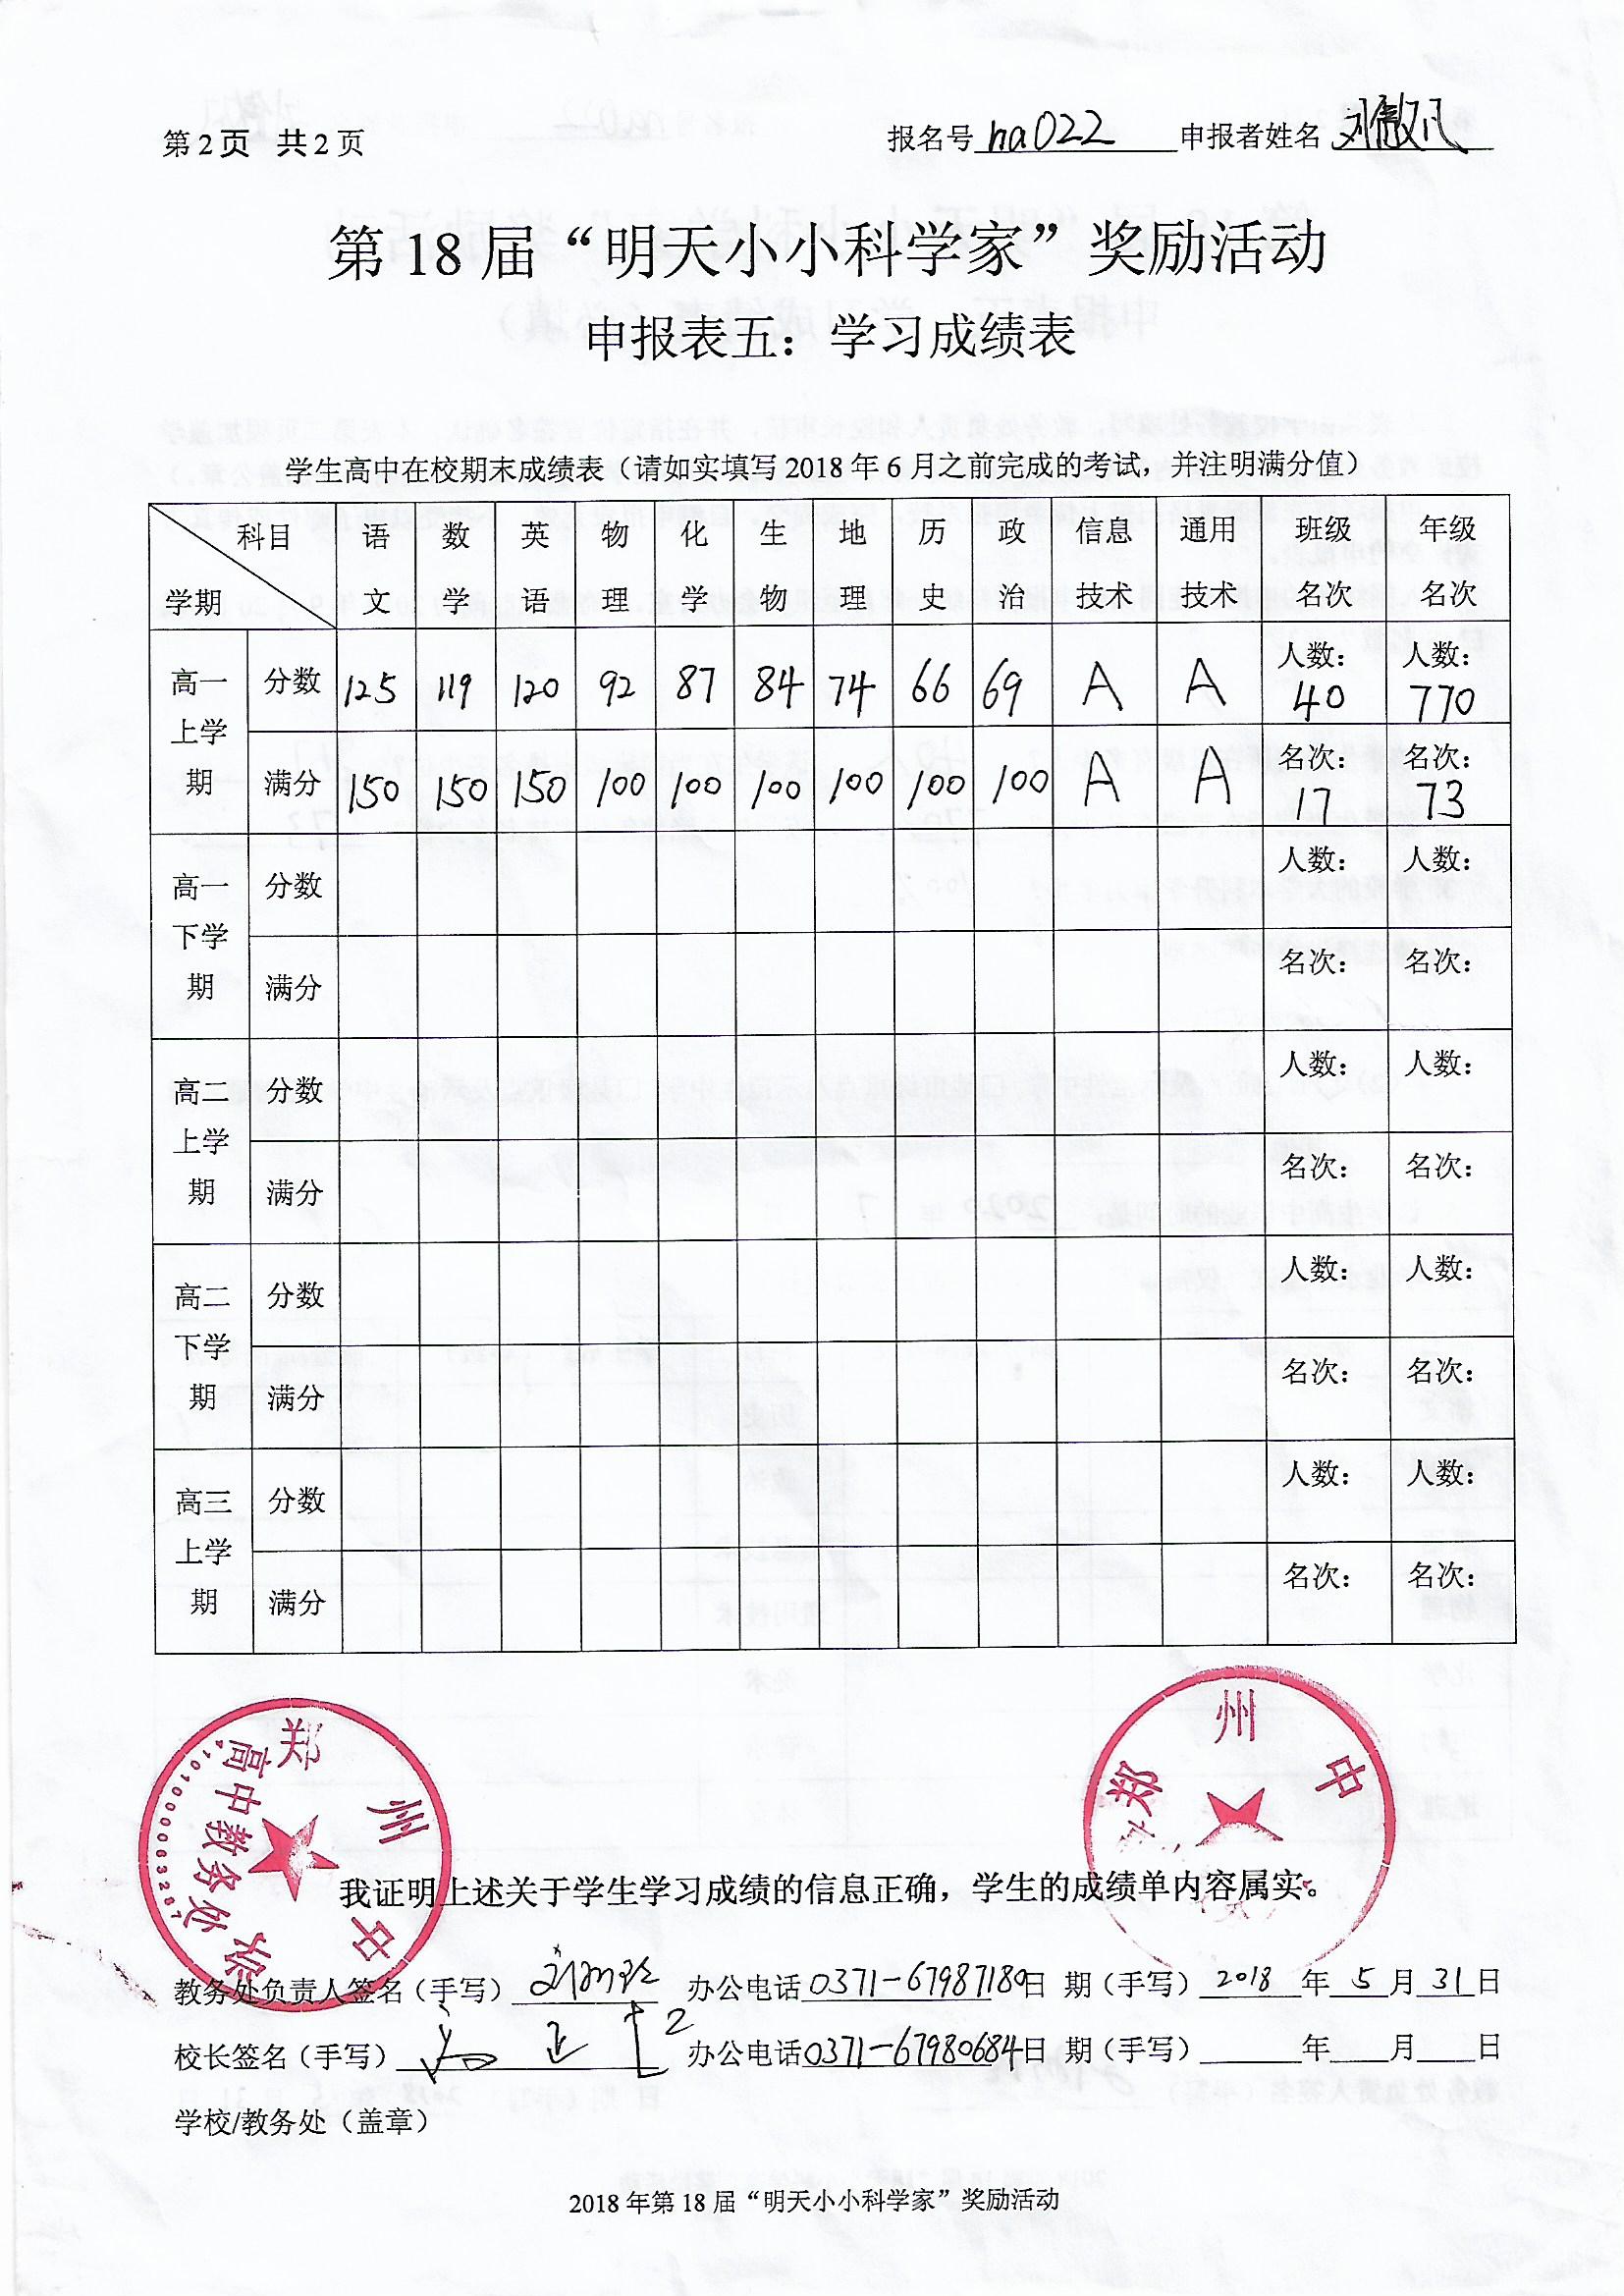 第2页 共2页 报名号 ha022 申报者姓名 刘傲凡
第18届“明天小小科学家”奖励活动
申报表五：学习成绩表
学生高中在校期末成绩表（请如实填写2018年6月之前完成的考试，并注明满分值）
科目 学期 语文 数学 英语 物理 化学 生物 地理 历史 政治 信息技术 通用技术 班级名次 年级名次
高一上学期 分数 125 119 120 92 87 84 74 66 69 A A 人数：40 人数：770
满分 150 150 150 100 100 100 100 100 100 A A 名次：17 名次：73
高一下学期 分数 人数： 人数：
满分 名次： 名次：
高二上学期 分数 人数： 人数：
满分 名次： 名次：
高二下学期 分数 人数： 人数：
满分 名次： 名次：
高三上学期 分数 人数： 人数：
满分 名次： 名次：
郑州中学
高中教务处
4101000063207
郑州中
我证明上述关于学生学习成绩的信息正确，学生的成绩单内容属实。
教务处负责人签名（手写） 办公电话 0371-67987180 日 期（手写） 2018 年 5 月 31 日
校长签名（手写） 办公电话 0371-67980684 日 期（手写） 年 月 日
学校/教务处（盖章）
2018年第18届“明天小小科学家”奖励活动